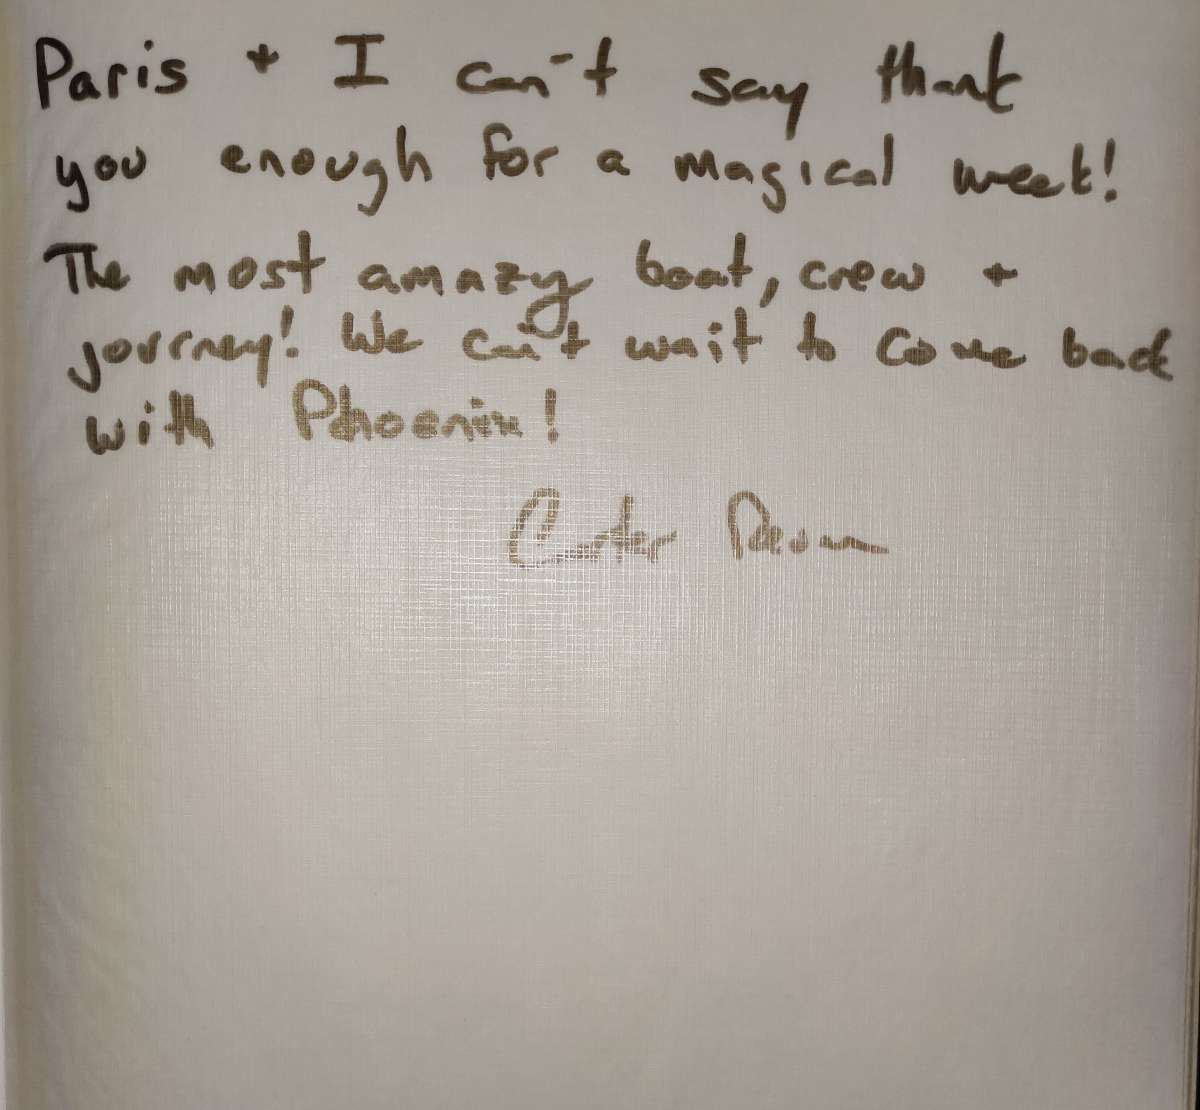 Paris + I can't say thank
you enough for a magical week!
The most amazing boat, crew +
journey! We can't wait to come back
with Phoenix!
Carter Reum